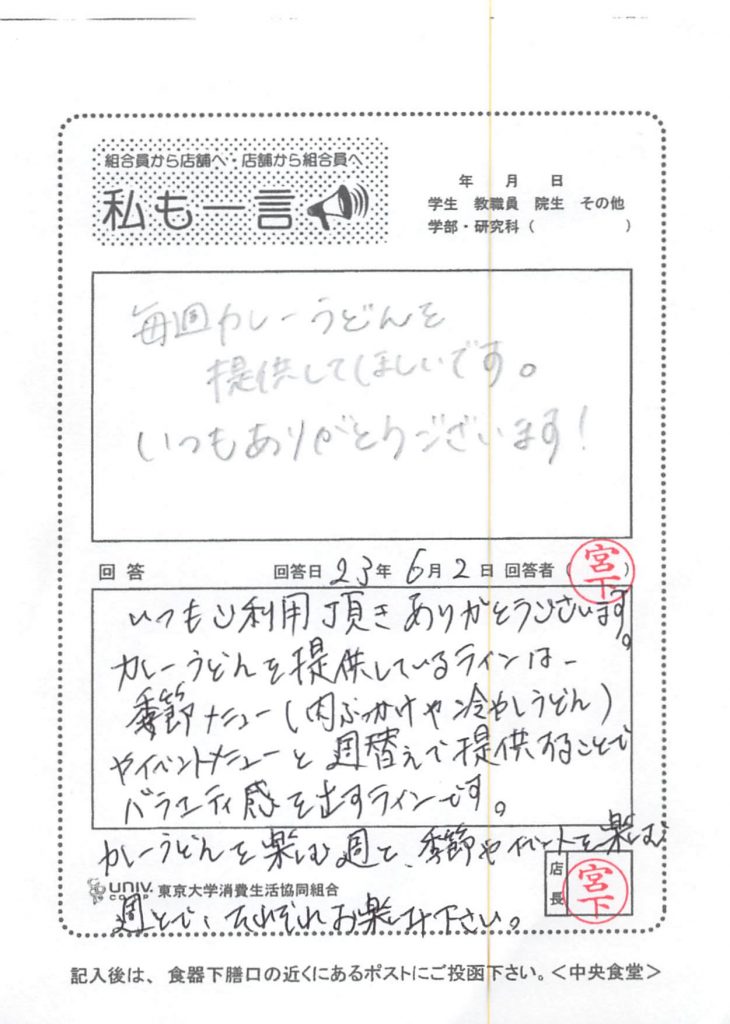 組合員から店舗へ・店舗から組合員へ
私も一言
年 月 日
学生 教職員 院生 その他
学部・研究科（ ）
毎週カレーうどんを
提供してほしいです。
いつもありがとうございます!
回答 回答日 23年 6月 2日 回答者（宮下）
いつもご利用頂きありがとうございます。
カレーうどんを提供しているラインは
季節メニュー(肉ぶっかけや冷やしうどん)
やイベントメニューと週替えで提供することで
バラエティ感を出すラインです。
カレーうどんを楽しむ週と、季節やイベントを楽しむ
UNIV. CO-OP 東京大学消費生活協同組合
店長 宮下
週とで、それぞれお楽しみ下さい。
記入後は、食器下膳口の近くにあるポストにご投函下さい。＜中央食堂＞